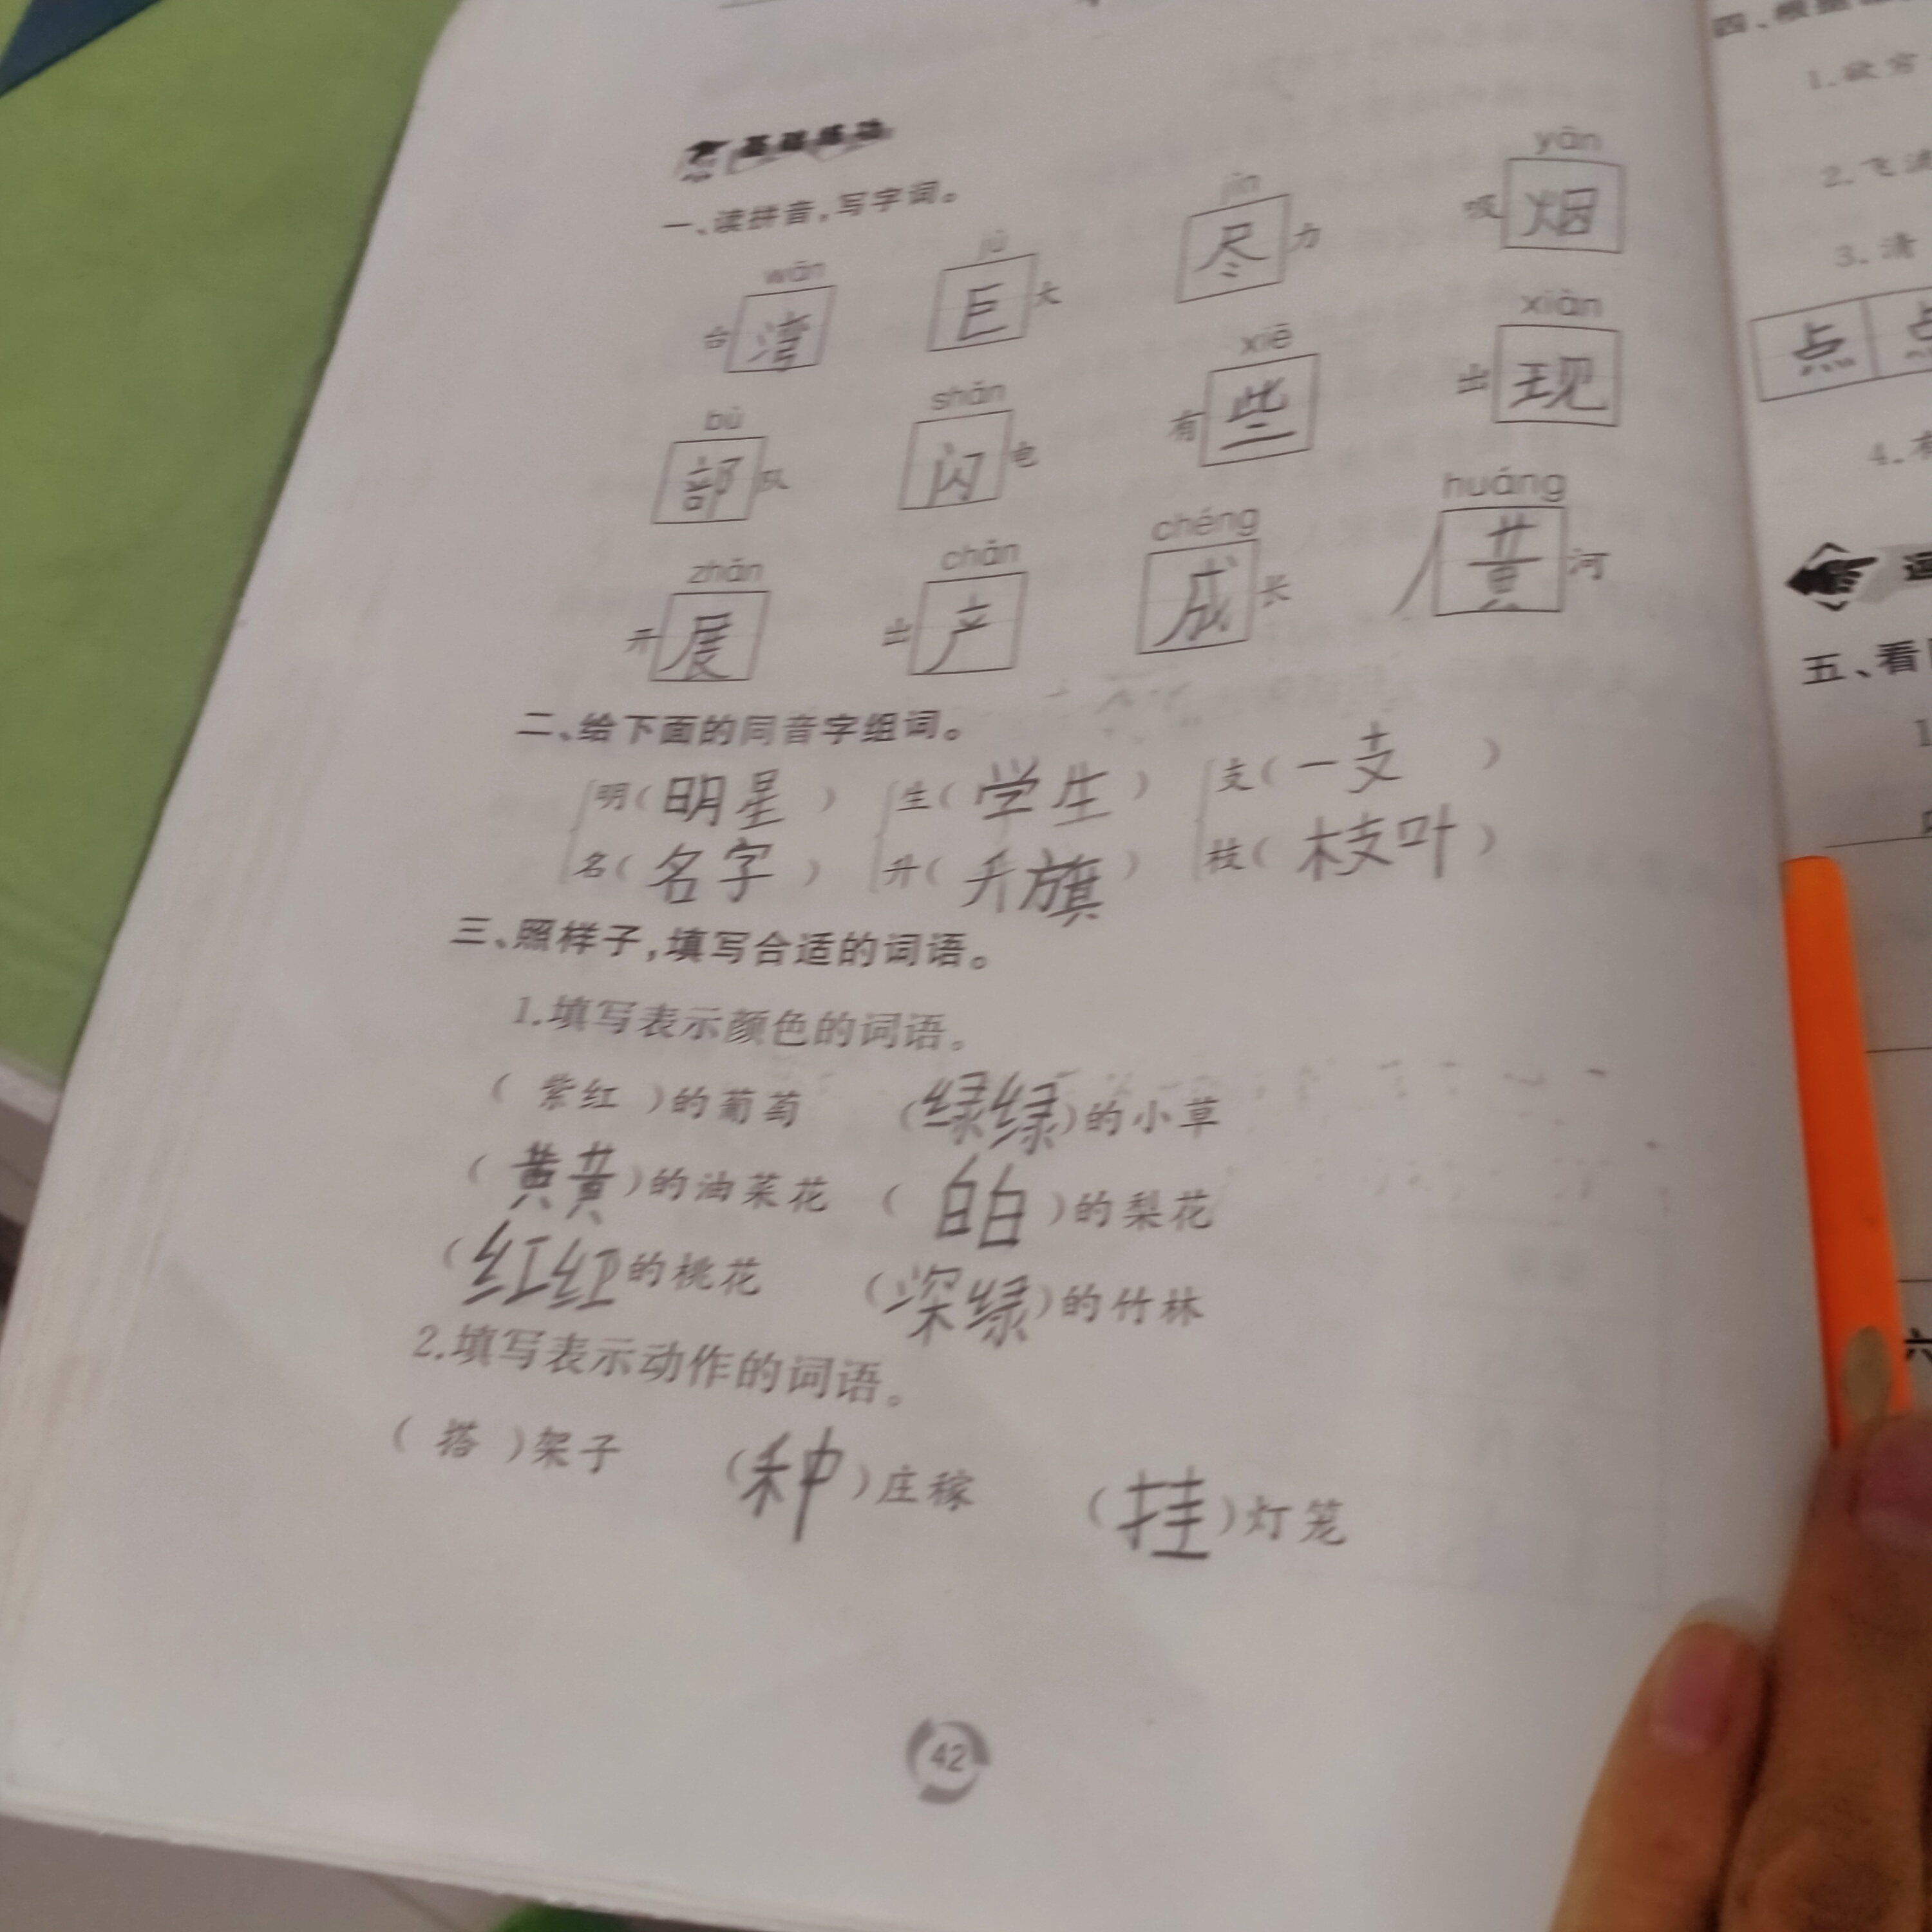 基础练功
一、读拼音，写字词。
wān jù jìn yān
台湾 巨大 尽力 吸烟
bù shǎn xiē xiàn
部队 闪电 有些 出现
zhǎn chǎn chéng huáng
开展 出产 成长 黄河
二、给下面的同音字组词。
明（明星） 生（学生） 支（一支）
名（名字） 升（升旗） 枝（枝叶）
三、照样子，填写合适的词语。
1.填写表示颜色的词语。
（紫红）的葡萄 （绿绿）的小草
（黄黄）的油菜花 （白白）的梨花
（红红）的桃花 （深绿）的竹林
2.填写表示动作的词语。
（搭）架子 （种）庄稼 （挂）灯笼
42
四、根据
1.欲穷
2.飞流
3.清
点点
4.
五、看
1
六